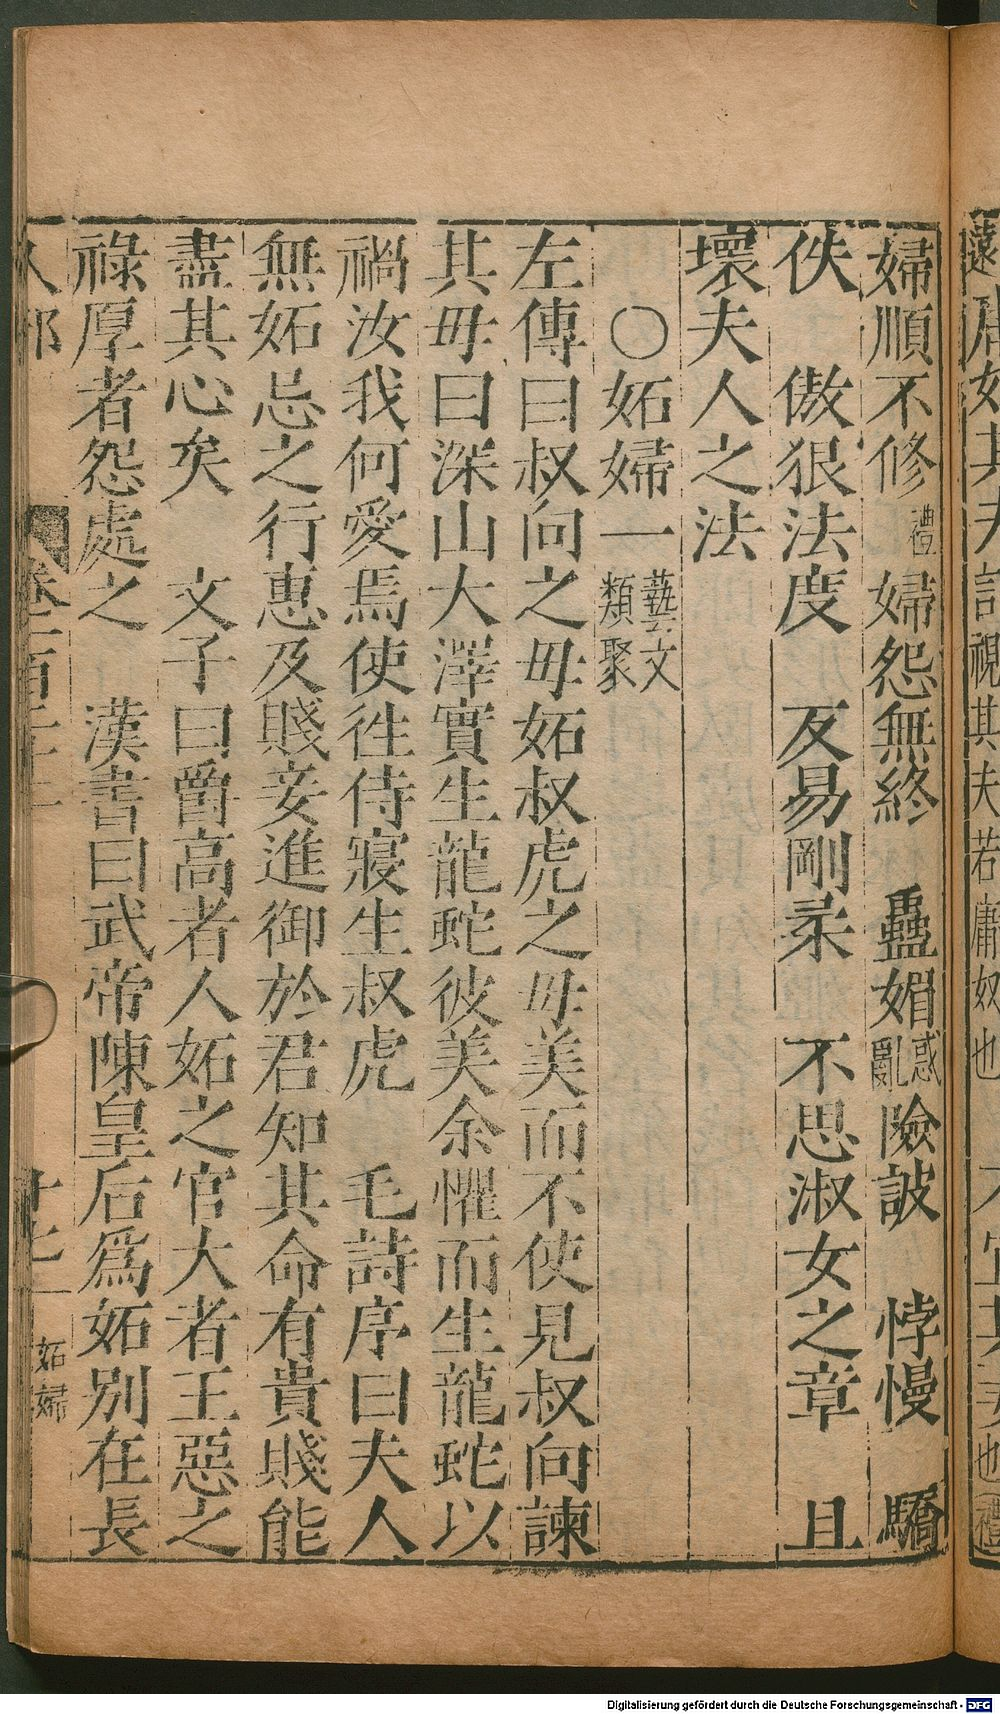 婦順不修禮 婦怨無終 蠱媚惑亂險詖 悖慢 驕
佚 傲狠法度 反易剛柔 不思淑女之章 且
壞夫人之法
○妬婦一藝文類聚
左傳曰叔向之母妬叔虎之母美而不使見叔向諫
其母曰深山大澤實生龍蛇彼美余懼而生龍蛇以
禍汝我何愛焉使往侍寢生叔虎 毛詩序曰夫人
無妬忌之行惠及賤妾進御於君知其命有貴賤能
盡其心矣 文子曰爵高者人妬之官大者王惡之
祿厚者怨處之 漢書曰武帝陳皇后爲妬別在長
人部 卷二百二十 十七 妬婦
Digitalisierung gefördert durch die Deutsche Forschungsgemeinschaft - DFG